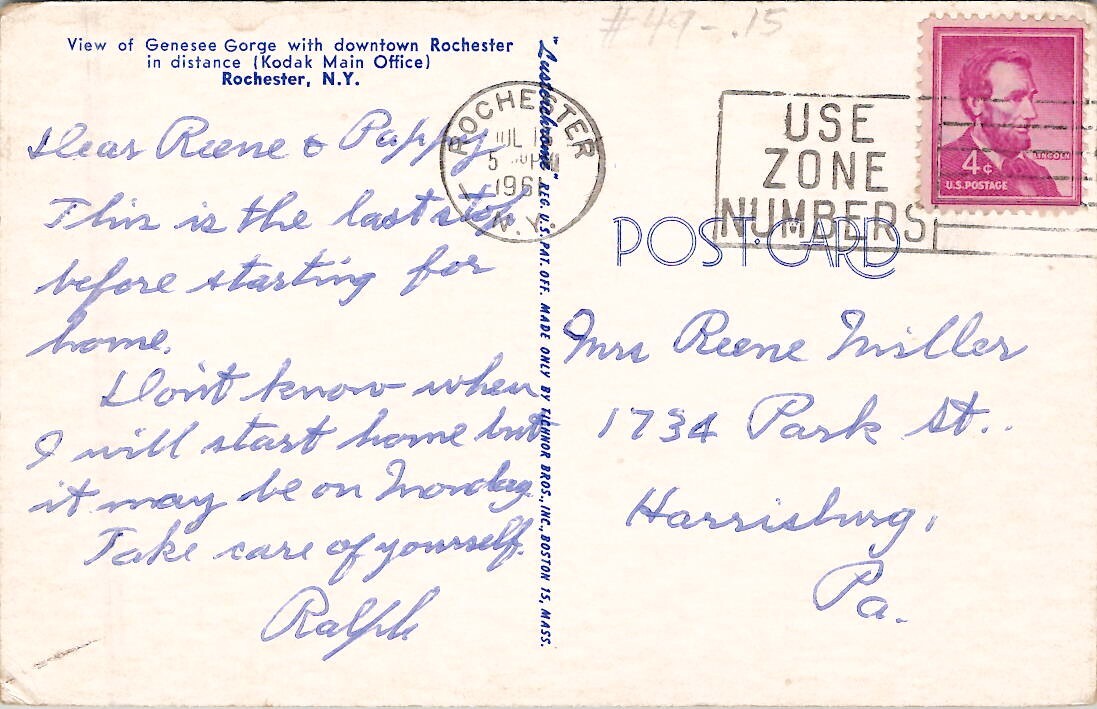 #49-.15
View of Genesee Gorge with downtown Rochester
in distance (Kodak Main Office)
Rochester, N.Y.
Dear Reene & Pappy
This is the last stop
before starting for
home.
Don't know when
I will start home but
it may be on Monday.
Take care of yourself.
Ralph
"Lusterchrome" REG. U.S. PAT. OFF. MADE ONLY BY TICHNOR BROS., INC., BOSTON 15, MASS.
ROCHESTER
JUL
5 PM
196
N.Y.
USE
ZONE
NUMBERS
LINCOLN
4¢
U.S. POSTAGE
POST CARD
Mrs Reene Miller
1734 Park St..
Harrisburg,
Pa.